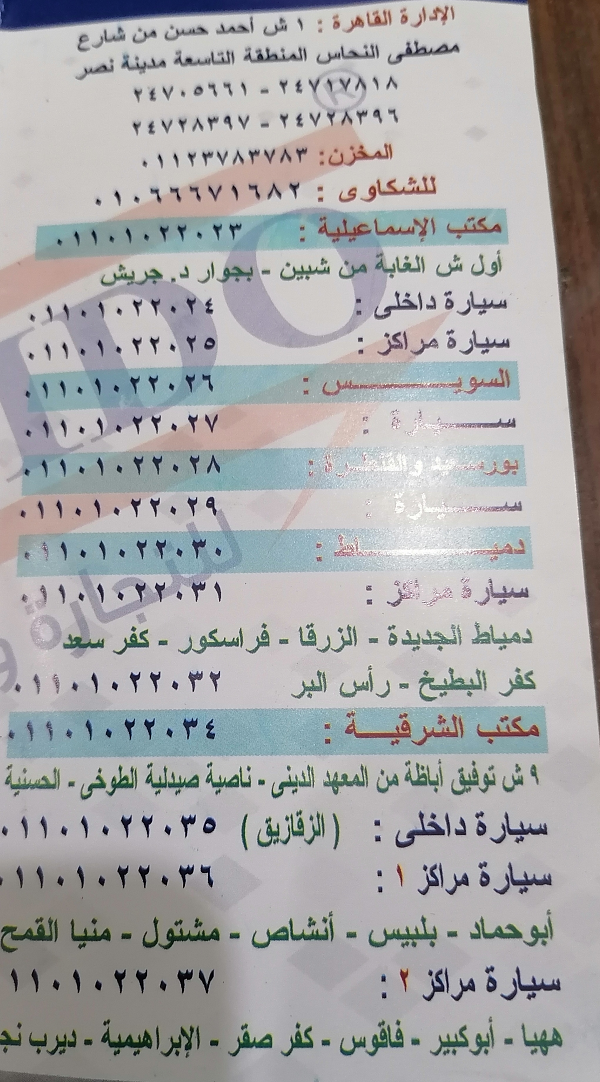 الإدارة القاهرة : ١ ش أحمد حسن من شارع
مصطفى النحاس المنطقة التاسعة مدينة نصر
٢٤٧١٧٨١٨ - ٢٤٧٠٥٦٦١
٢٤٧٢٨٣٩٦ - ٢٤٧٢٨٣٩٧
المخزن: ٠١١٢٣٧٨٣٧٨٣
للشكاوى : ٠١٠٦٦٦٧١٦٨٢
مكتب الإسماعيلية : ٠١١٠١٠٢٢٠٢٣
أول ش الغابة من شبين - بجوار د. جريش
سيارة داخلى : ٠١١٠١٠٢٢٠٢٤
سيارة مراكز : ٠١١٠١٠٢٢٠٢٥
السويس : ٠١١٠١٠٢٢٠٢٦
سيارة : ٠١١٠١٠٢٢٠٢٧
بورسعيد والقنطرة : ٠١١٠١٠٢٢٠٢٨
سيارة : ٠١١٠١٠٢٢٠٢٩
دمياط : ٠١١٠١٠٢٢٠٣٠
سيارة مراكز : ٠١١٠١٠٢٢٠٣١
دمياط الجديدة - الزرقا - فراسكور - كفر سعد
كفر البطيخ - رأس البر ٠١١٠١٠٢٢٠٣٢
مكتب الشرقية : ٠١١٠١٠٢٢٠٣٤
٩ ش توفيق أباظة من المعهد الدينى - ناصية صيدلية الطوخى - الحسنية
سيارة داخلى : ( الزقازيق ) ٠١١٠١٠٢٢٠٣٥
سيارة مراكز ١ : ٠١١٠١٠٢٢٠٣٦
أبوحماد - بلبيس - أنشاص - مشتول - منيا القمح
سيارة مراكز ٢ : ١١٠١٠٢٢٠٣٧
ههيا - أبوكبير - فاقوس - كفر صقر - الإبراهيمية - ديرب نج